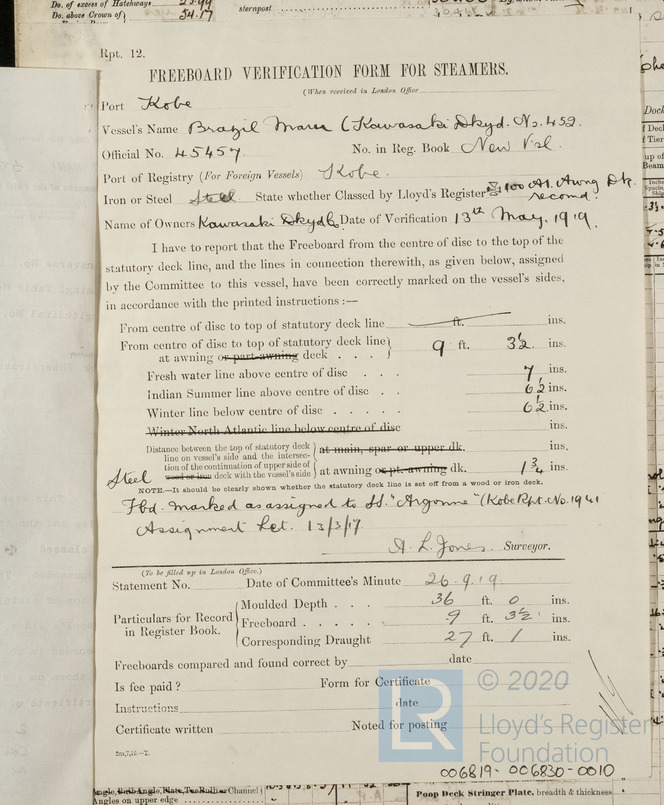 Do. of excess of Hatchways
Do. above Crown of
54.17
sternpost
Rpt. 12.
FREEBOARD VERIFICATION FORM FOR STEAMERS.
(When received in London Office
Port Kobe
Vessel's Name Brazil Maru (Kawasaki Dkyd. No. 452.
Official No. 45457 No. in Reg. Book New Vsl.
Port of Registry (For Foreign Vessels) Kobe.
Iron or Steel Steel State whether Classed by Lloyd's Register 100 A1. Awng Dk. recomd.
Name of Owners Kawasaki Dkyd Co. Date of Verification 13th May. 1919.
I have to report that the Freeboard from the centre of disc to the top of the
statutory deck line, and the lines in connection therewith, as given below, assigned
by the Committee to this vessel, have been correctly marked on the vessel's sides,
in accordance with the printed instructions :—
From centre of disc to top of statutory deck line ft. ins.
From centre of disc to top of statutory deck line
at awning or part-awning deck . . . 9 ft. 3½ ins.
Fresh water line above centre of disc . . . 7 ins.
Indian Summer line above centre of disc . . 6½ ins.
Winter line below centre of disc . . . . . 6½ ins.
Winter North Atlantic line below centre of disc ins.
Distance between the top of statutory deck
line on vessel's side and the intersec-
tion of the continuation of upper side of
Steel wood or iron deck with the vessel's side
at main, spar or upper dk. ins.
at awning or pt. awning dk. 1¾ ins.
NOTE.—It should be clearly shown whether the statutory deck line is set off from a wood or iron deck.
Fbd. marked as assigned to SS. "Argonne" (Kobe Rpt. No. 1941
Assignment Let. 13/3/17
A. L. Jones. Surveyor.
(To be filled up in London Office.)
Statement No. Date of Committee's Minute 26.9.19.
Particulars for Record
in Register Book.
Moulded Depth . . . 36 ft. 0 ins.
Freeboard . . . . . 9 ft. 3½ ins.
Corresponding Draught 27 ft. 1 ins.
Freeboards compared and found correct by date
Is fee paid ? Form for Certificate
Instructions date
Certificate written Noted for posting
© 2020
LR
Lloyd's Register
Foundation
006819-006830-0010
Angles on upper edge
Poop Deck Stringer Plate, breadth & thickness